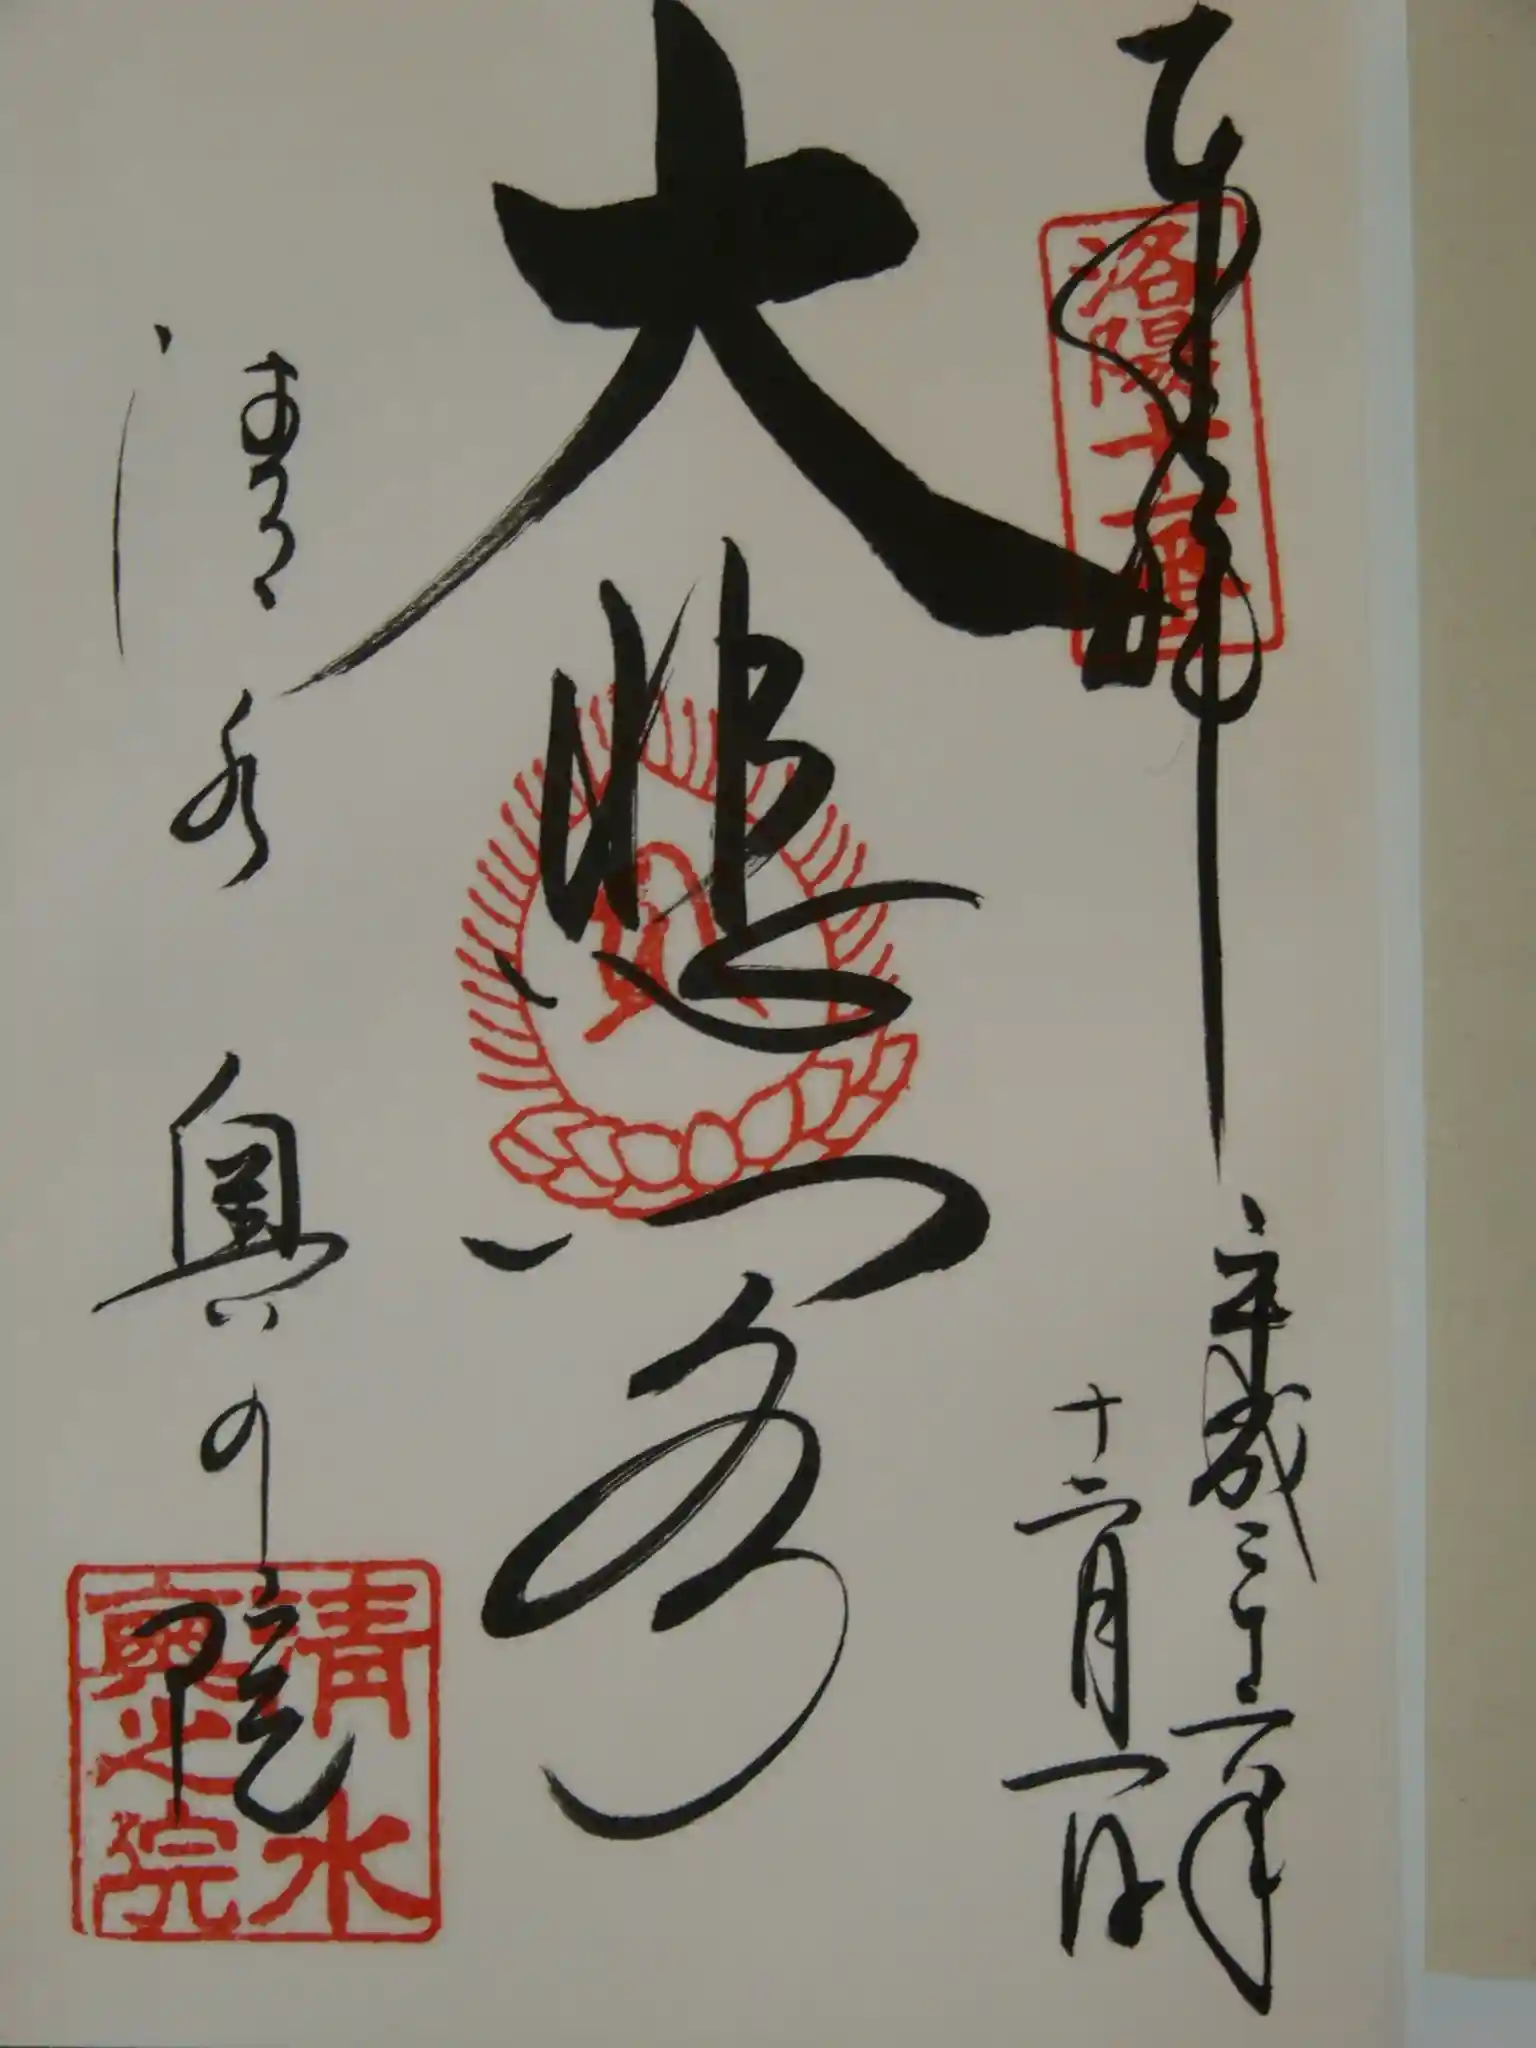 奉拝
洛陽十一番
平成二十二年
十二月一日
大悲閣
清水奥の院
清水
奥之院